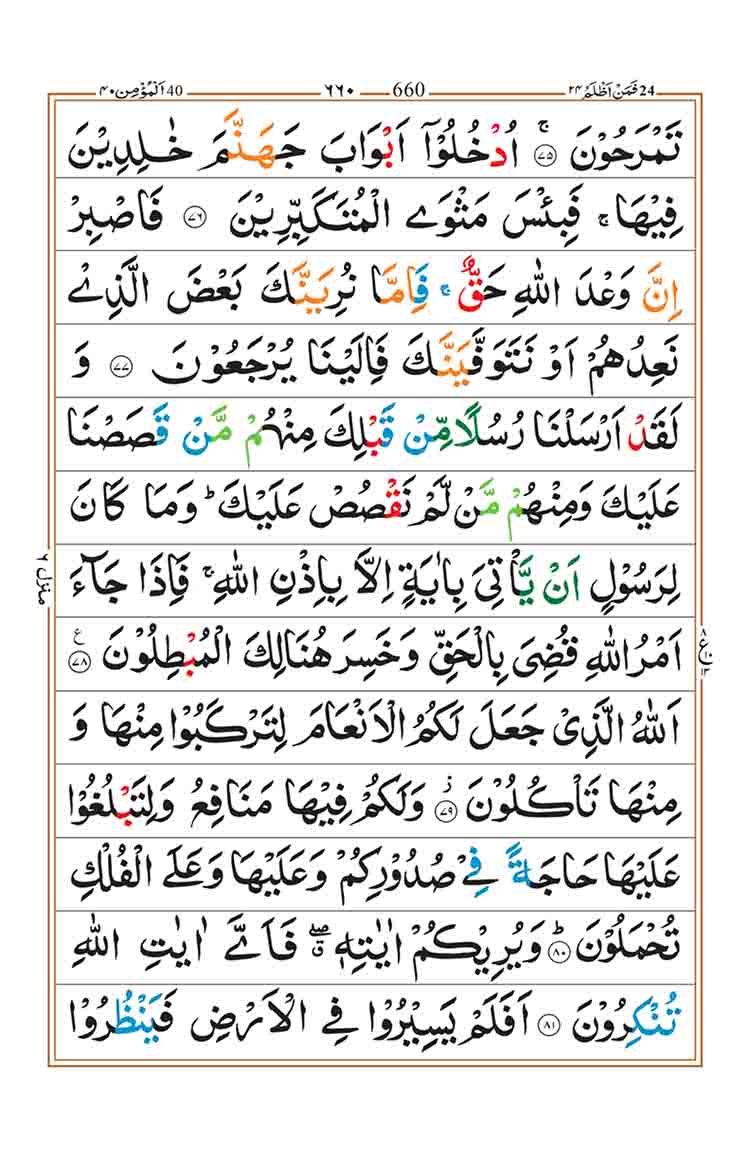 24 فَمَنْ اَظْلَمُ ۲۴ 660 ۶۶۰ 40 اَلْمُؤْمِن ۴۰
تَمْرَحُوْنَ ۚ ۷۵ اُدْخُلُوْۤا اَبْوَابَ جَهَنَّمَ خٰلِدِيْنَ
فِيْهَا ۚ فَبِئْسَ مَثْوَى الْمُتَكَبِّرِيْنَ ۷۶ فَاصْبِرْ
اِنَّ وَعْدَ اللّٰهِ حَقٌّ ۚ فَاِمَّا نُرِيَنَّكَ بَعْضَ الَّذِيْ
نَعِدُهُمْ اَوْ نَتَوَفَّيَنَّكَ فَاِلَيْنَا يُرْجَعُوْنَ ۷۷ وَ
لَقَدْ اَرْسَلْنَا رُسُلًا مِّنْ قَبْلِكَ مِنْهُمْ مَّنْ قَصَصْنَا
عَلَيْكَ وَمِنْهُمْ مَّنْ لَّمْ نَقْصُصْ عَلَيْكَ ؕ وَمَا كَانَ
لِرَسُوْلٍ اَنْ يَّاْتِيَ بِاٰيَةٍ اِلَّا بِاِذْنِ اللّٰهِ ۚ فَاِذَا جَآءَ
اَمْرُ اللّٰهِ قُضِيَ بِالْحَقِّ وَخَسِرَ هُنَالِكَ الْمُبْطِلُوْنَ ۷۸ ع
اَللّٰهُ الَّذِيْ جَعَلَ لَكُمُ الْاَنْعَامَ لِتَرْكَبُوْا مِنْهَا وَ
مِنْهَا تَاْكُلُوْنَ ۷۹ ز وَلَكُمْ فِيْهَا مَنَافِعُ وَلِتَبْلُغُوْا
عَلَيْهَا حَاجَةً فِيْ صُدُوْرِكُمْ وَعَلَيْهَا وَعَلَى الْفُلْكِ
تُحْمَلُوْنَ ؕ ۸۰ وَيُرِيْكُمْ اٰيٰتِهٖ ۖ ق فَاَيَّ اٰيٰتِ اللّٰهِ
تُنْكِرُوْنَ ۸۱ اَفَلَمْ يَسِيْرُوْا فِي الْاَرْضِ فَيَنْظُرُوْا
منزل ۶